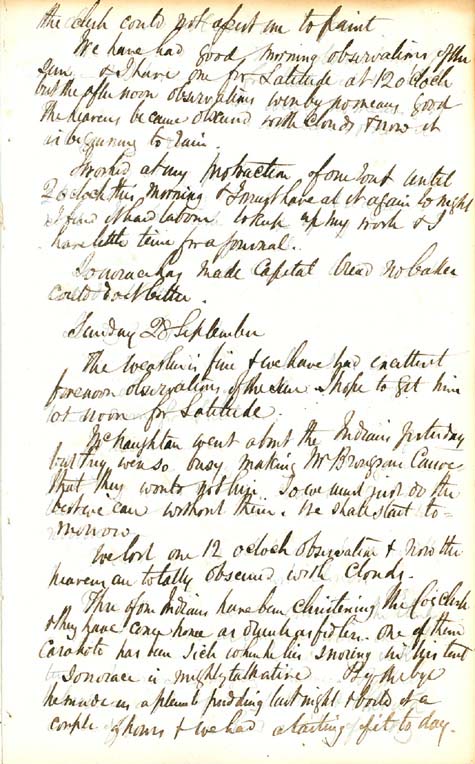 the
We have had good morning observations of the
Sun & I have one for Latitude at 12 o clock
but the afternoon observations were by no means good
The heavens became obscured with clouds & now it
is beginning to rain.
I worked at my protraction of our rout until
2 o clock this morning & I must have at it again to night
I find it hard labour to keep up my work & I
have little time for a Journal.
has made Capital bread no baker
could do it better.
Sunday 28 September
The weather is fine & we have had excellent
forenoon observations of the sun I hope to get him
at noon for Latitude.
McNaughtan went about the Indians yesterday
but they were so busy making Mr Canoe
that they would not hire. So we must just do the
best we can without them. We shall start to=
morrow
We lost our 12 o clock observation & now the
heavens are totally obscured with clouds.
Three of our Indians have been christening the
& they have come home as drunk as fiddlers. one of them
has been sick when he lies snoring in his tent
is mighty talkative By the bye
he made us a plumb pudding last night & boiled it a
couple of hours & we had a to day.